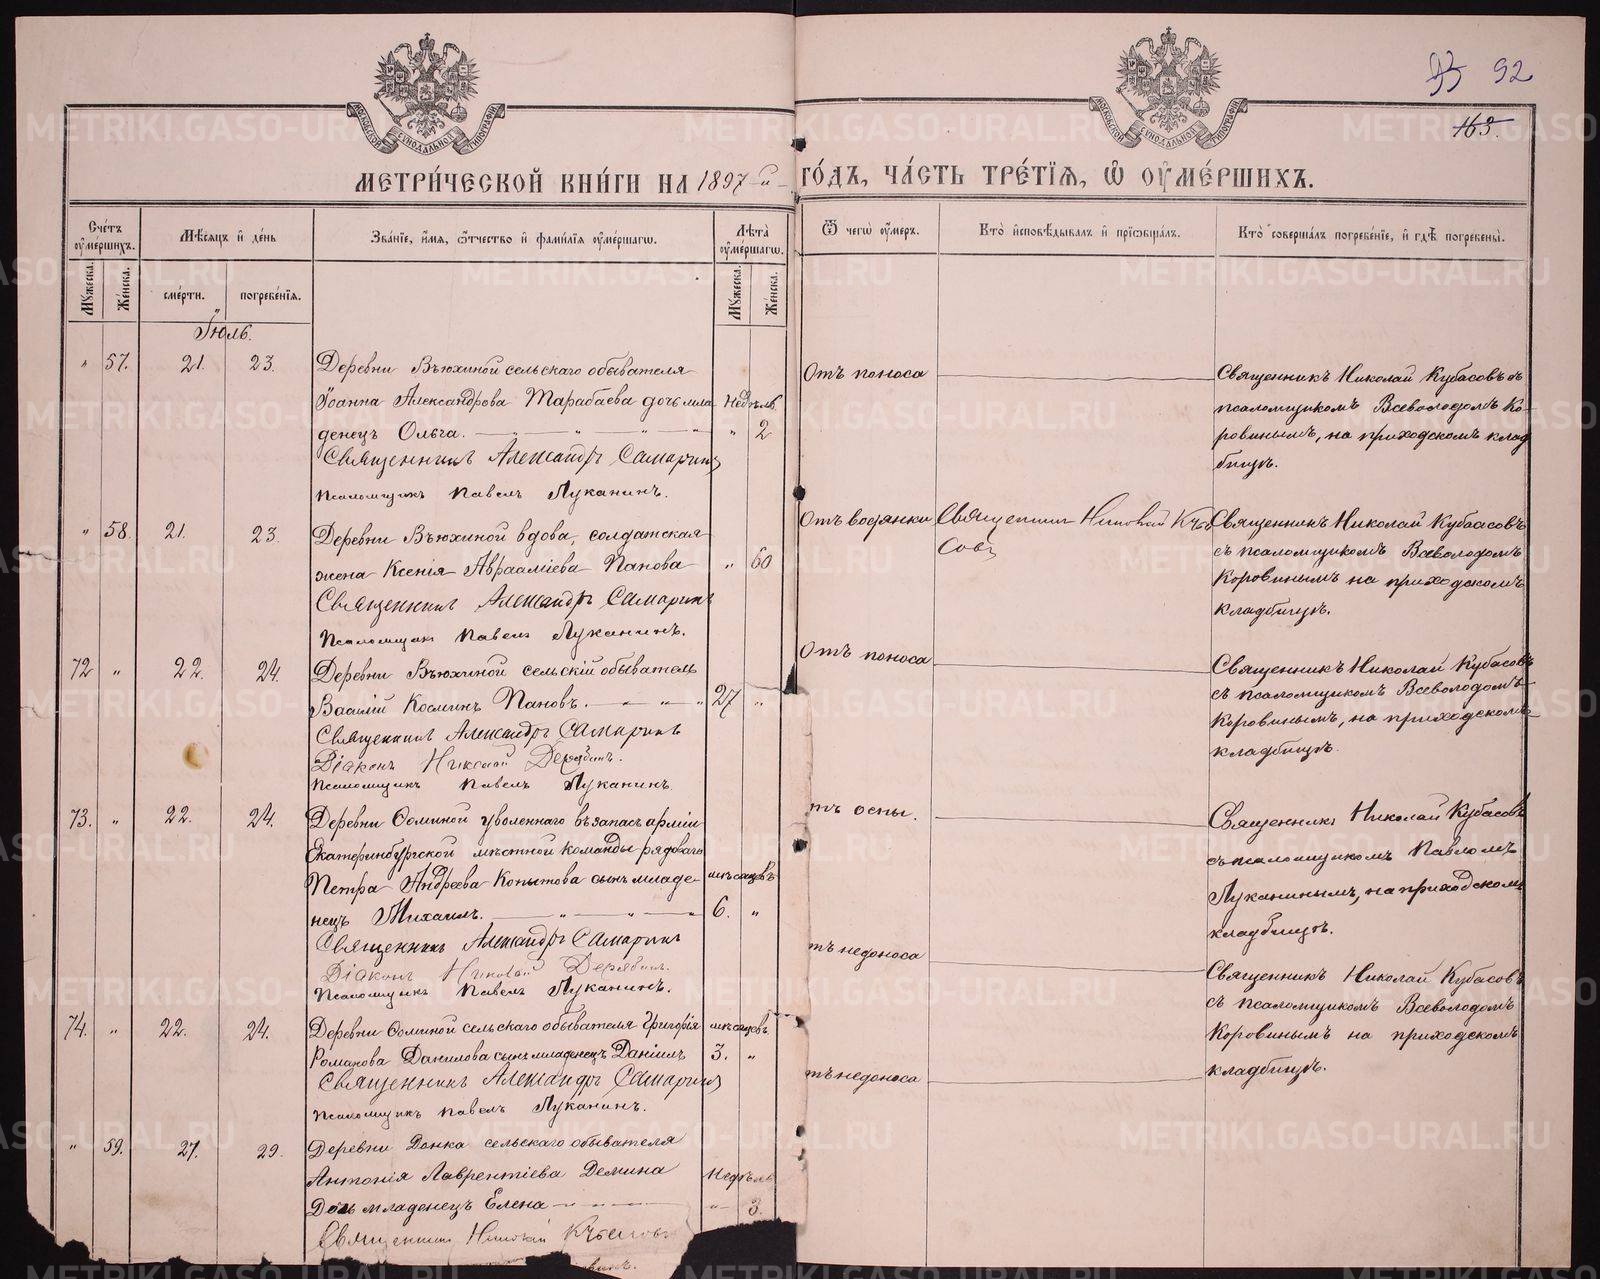 93 92
163.
МОСКОВСКОЙ СѴНОДАЛЬНОЙ ТИПОГРАФІИ
МОСКОВСКОЙ СѴНОДАЛЬНОЙ ТИПОГРАФІИ
МЕТРИ́ЧЕСКОЙ КНИ́ГИ НА 1897-й ГО́ДЪ, ЧА́СТЬ ТРЕ́ТІѦ, Ѡ ОУМЕ́РШИХЪ.
Сче́тъ оуме́ршихъ.
Мꙋжеска.
Же́нска.
Мѣ́сѧцъ и де́нь
сме́рти.
погребе́нїѧ.
Зва́нїе, и́мѧ, ѻ́тчество и фами́лїѧ оуме́ршагѡ.
Лѣ́та оуме́ршагѡ.
Мꙋжеска.
Же́нска.
Ѿ чегѡ̀ оу́меръ.
Кто̀ исповѣ́дывалъ и прїѡбща́лъ.
Кто̀ соверша́лъ погребе́нїе, и гдѣ̀ погребены̀.
Іюль.
" 57. 21. 23. Деревни Вьюхиной сельскаго обывателя
Іоанна Александрова Тарабаева дочь мла- Недѣль
денецъ Ольга. " 2
Священникъ Александръ Самаринъ
Псаломщикъ Павелъ Луканинъ.
Отъ поноса
Священникъ Николай Кубасовъ съ
псаломщикомъ Всеволодомъ Ко-
ровинымъ, на приходскомъ клад
бищѣ.
" 58. 21. 23. Деревни Вьюхиной вдова, солдатская
жена Ксенія Авраамiева Панова " 60
Священникъ Александръ Самаринъ
Псаломщикъ Павелъ Луканинъ.
Отъ водянки
Священникъ Николай Куба
совъ
Священникъ Николай Кубасовъ
съ псаломщикомъ Всеволодомъ
Коровинымъ на приходскомъ
кладбищѣ.
72 " 22. 24. Деревни Вьюхиной сельскій обыватель
Василій Косминъ Пановъ. 27 "
Священникъ Александръ Самаринъ
Діаконъ Николай Дерябинъ.
Псаломщикъ Павелъ Луканинъ.
Отъ поноса
Священникъ Николай Кубасовъ
съ псаломщикомъ Всеволодомъ
Коровинымъ, на приходскомъ
кладбищѣ.
73. " 22. 24. Деревни Осминой уволеннаго въ запасъ арміи
Екатеринбургской мѣстной команды рядоваго
Петра Андреева Копытова сынъ младе- мѣсяцевъ
нецъ Михаилъ. 6. "
Священникъ Александръ Самаринъ
Діаконъ Николай Дерябинъ.
Псаломщикъ Павелъ Луканинъ.
тъ оспы.
Священникъ Николай Кубасовъ
съ псаломщикомъ Павломъ
Луканинымъ, на приходскомъ
кладбищѣ.
74. " 22. 24. Деревни Осминой сельскаго обывателя Григорія мѣсяцевъ
Романова Данилова сынъ младенецъ Даніилъ 3. "
Священникъ Александръ Самаринъ
Псаломщикъ Павелъ Луканинъ.
тъ недоноса
Священникъ Николай Кубасовъ
съ псаломщикомъ Всеволодомъ
Коровинымъ на приходскомъ
кладбищѣ.
" 59. 27. 29. Деревни Донка сельскаго обывателя
Антонія Лаврентіева Демина Недѣль
дочь младенецъ Елена " 3.
Священникъ Николай Кубасовъ
тъ недоноса